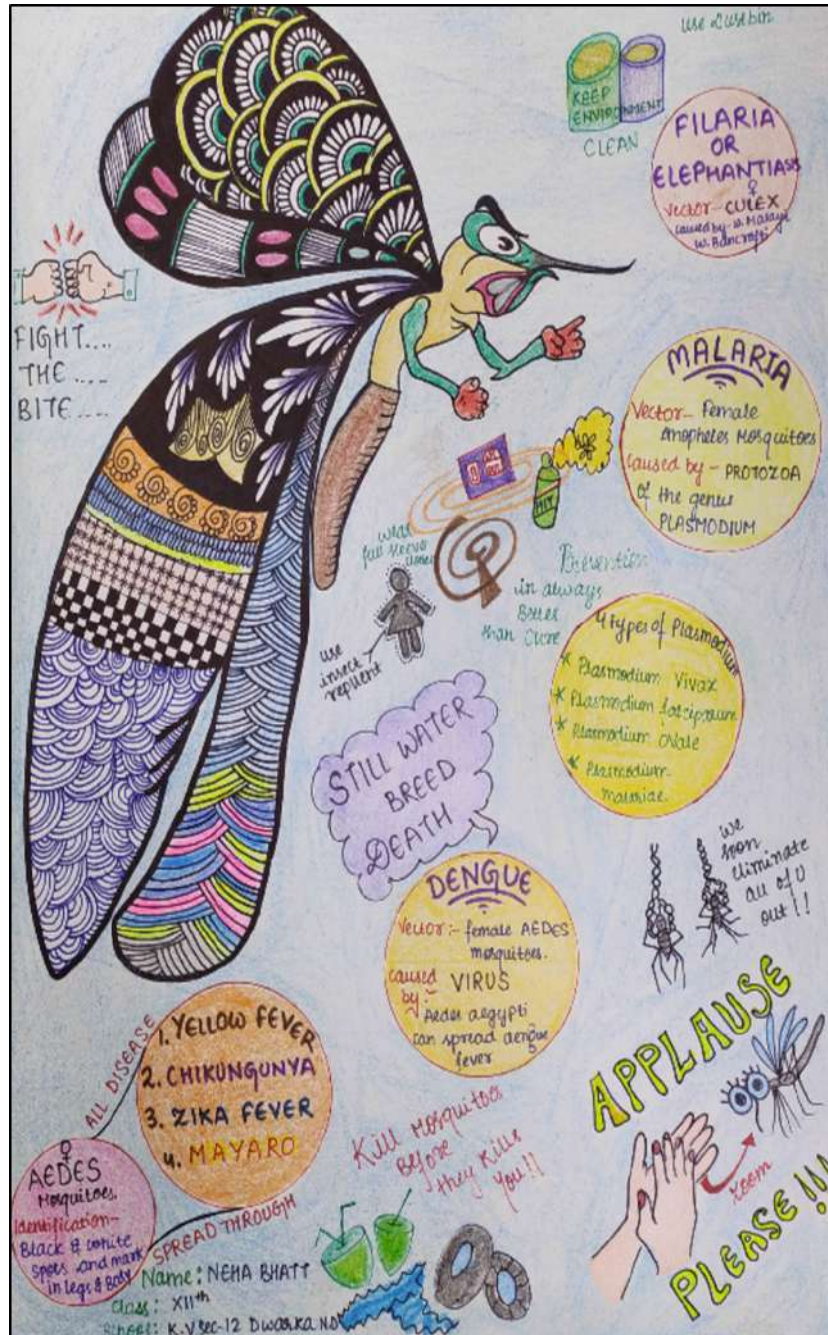 use Dusebin
KEEP
ENVIRONMENT
CLEAN
FILARIA
OR
ELEPHANTIASIS
Vector- CULEX
caused by- W. Malayi
W. Bancrofti
FIGHT....
THE ....
BITE....
MALARIA
Vector- Female
Anopheles Mosquitoes
caused by- PROTOZOA
of the genus
PLASMODIUM
HIT
wear
full sleeve
use
insect
repllent
Prevention
in always
Better
than cure
4 types of Plasmodium
* Plasmodium Vivax
* Plasmodium falciparum
* Plasmodium Ovale
* Plasmodium
malariae.
STILL WATER
BREED
DEATH
we
soon
eliminate
all of U
out!!
DENGUE
Vector:- female AEDES
mosquitoes.
caused VIRUS
by:-
Aedes aegypti
can spread dengue
fever
APPLAUSE
PLEASE!!!
zoom
ALL DISEASE
1. YELLOW FEVER
2. CHIKUNGUNYA
3. ZIKA FEVER
4. MAYARO
SPREAD THROUGH
♀
AEDES
Mosquitoes.
Identification-
Black & white
spots and mark
in legs & Body
Kill Mosquitoes
Before
they kills
you!!
Name: NEHA BHATT
Class: XIIth
School: K.V sec-12 Dwarka N.D